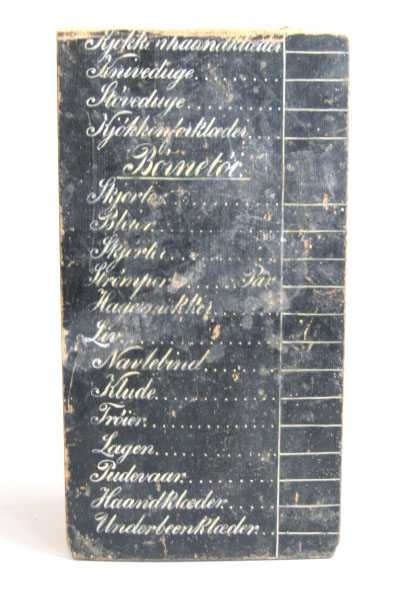 Kjøkkenhaandklæder
Kniveduge
Støveduge
Kjökkenforklæder
Börnetöi
Skjorte
Bluser
Skjørte
Strömper Par
Hagesmække
Liv
Navlebind
Klude
Tröier
Lagen
Pudevaar
Haandklæder
Underbeenklæder